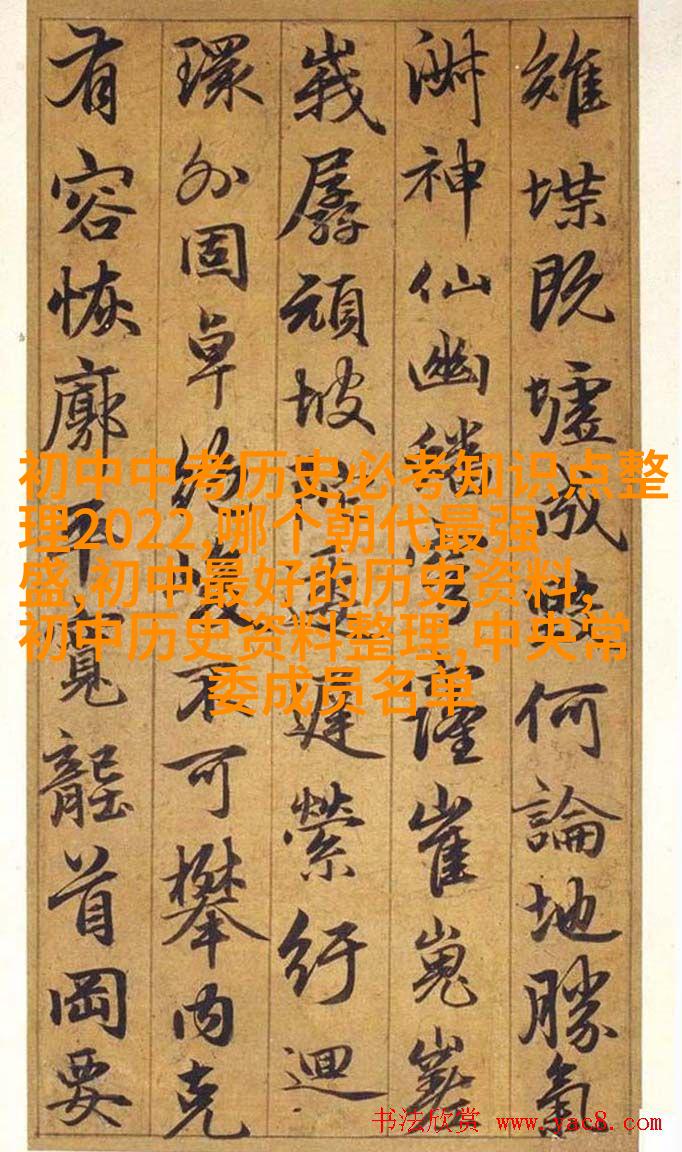 雉堞既墟成何論地勝氣
神仙幽崔嵬
峩孱頑坡遲縈行迴
環外固卓絶不可攀内克
有容恢廓寬龍首岡要
初中中考历史必考知识点整
理2022,哪个朝代最强
盛,初中最好的历史资料,
初中历史资料整理,中央常
委成员名单
书法欣赏 www.yac8.com